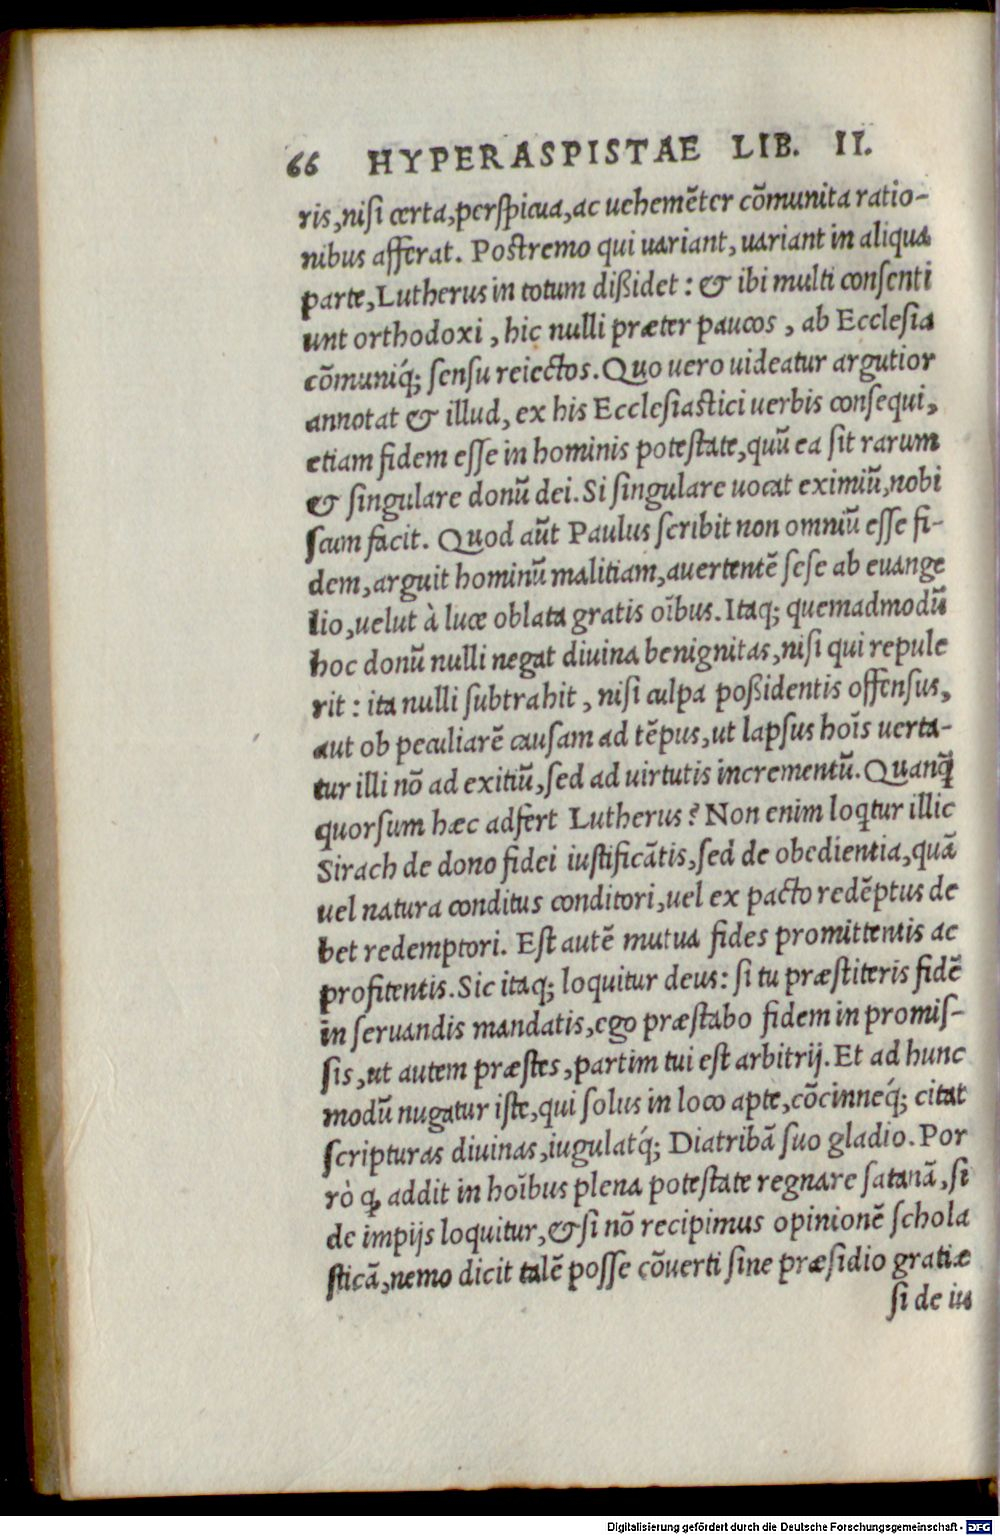 66 HYPERASPISTAE LIB. II.
ris, nisi certa, perspicua, ac uehemẽter cõmunita ratio-
nibus afferat. Postremo qui uariant, uariant in aliqua
parte, Lutherus in totum dißidet: & ibi multi consenti
unt orthodoxi, hic nulli præter paucos, ab Ecclesia
cõmuniq́; sensu reiectos. Quo uero uideatur argutior
annotat & illud, ex his Ecclesiastici uerbis consequi,
etiam fidem esse in hominis potestate, quũ ea sit rarum
& singulare donũ dei. Si singulare uocat eximiũ, nobi
scum facit. Quod aũt Paulus scribit non omniũ esse fi-
dem, arguit hominũ malitiam, auertentẽ sese ab euange
lio, uelut à luce oblata gratis oĩbus. Itaq; quemadmodũ
hoc donũ nulli negat diuina benignitas, nisi qui repule
rit: ita nulli subtrahit, nisi culpa poßidentis offensus,
aut ob peculiarẽ causam ad tẽpus, ut lapsus hoĩs uerta-
tur illi nõ ad exitiũ, sed ad uirtutis incrementũ. Quanq̃
quorsum hæc adfert Lutherus? Non enim loqtur illic
Sirach de dono fidei iustificãtis, sed de obedientia, quã
uel natura conditus conditori, uel ex pacto redẽptus de
bet redemptori. Est autẽ mutua fides promittentis ac
profitentis. Sic itaq; loquitur deus: si tu præstiteris fidẽ
in seruandis mandatis, ego præstabo fidem in promis-
sis, ut autem præstes, partim tui est arbitrij. Et ad hunc
modũ nugatur iste, qui solus in loco apte, cõcinneq́; citat
scripturas diuinas, iugulatq́; Diatribã suo gladio. Por
rò ꝙ addit in hoĩbus plena potestate regnare satanã, si
de impijs loquitur, & si nõ recipimus opinionẽ schola
sticã, nemo dicit talẽ posse cõuerti sine præsidio gratiæ
si de ius
Digitalisierung gefördert durch die Deutsche Forschungsgemeinschaft - DFG